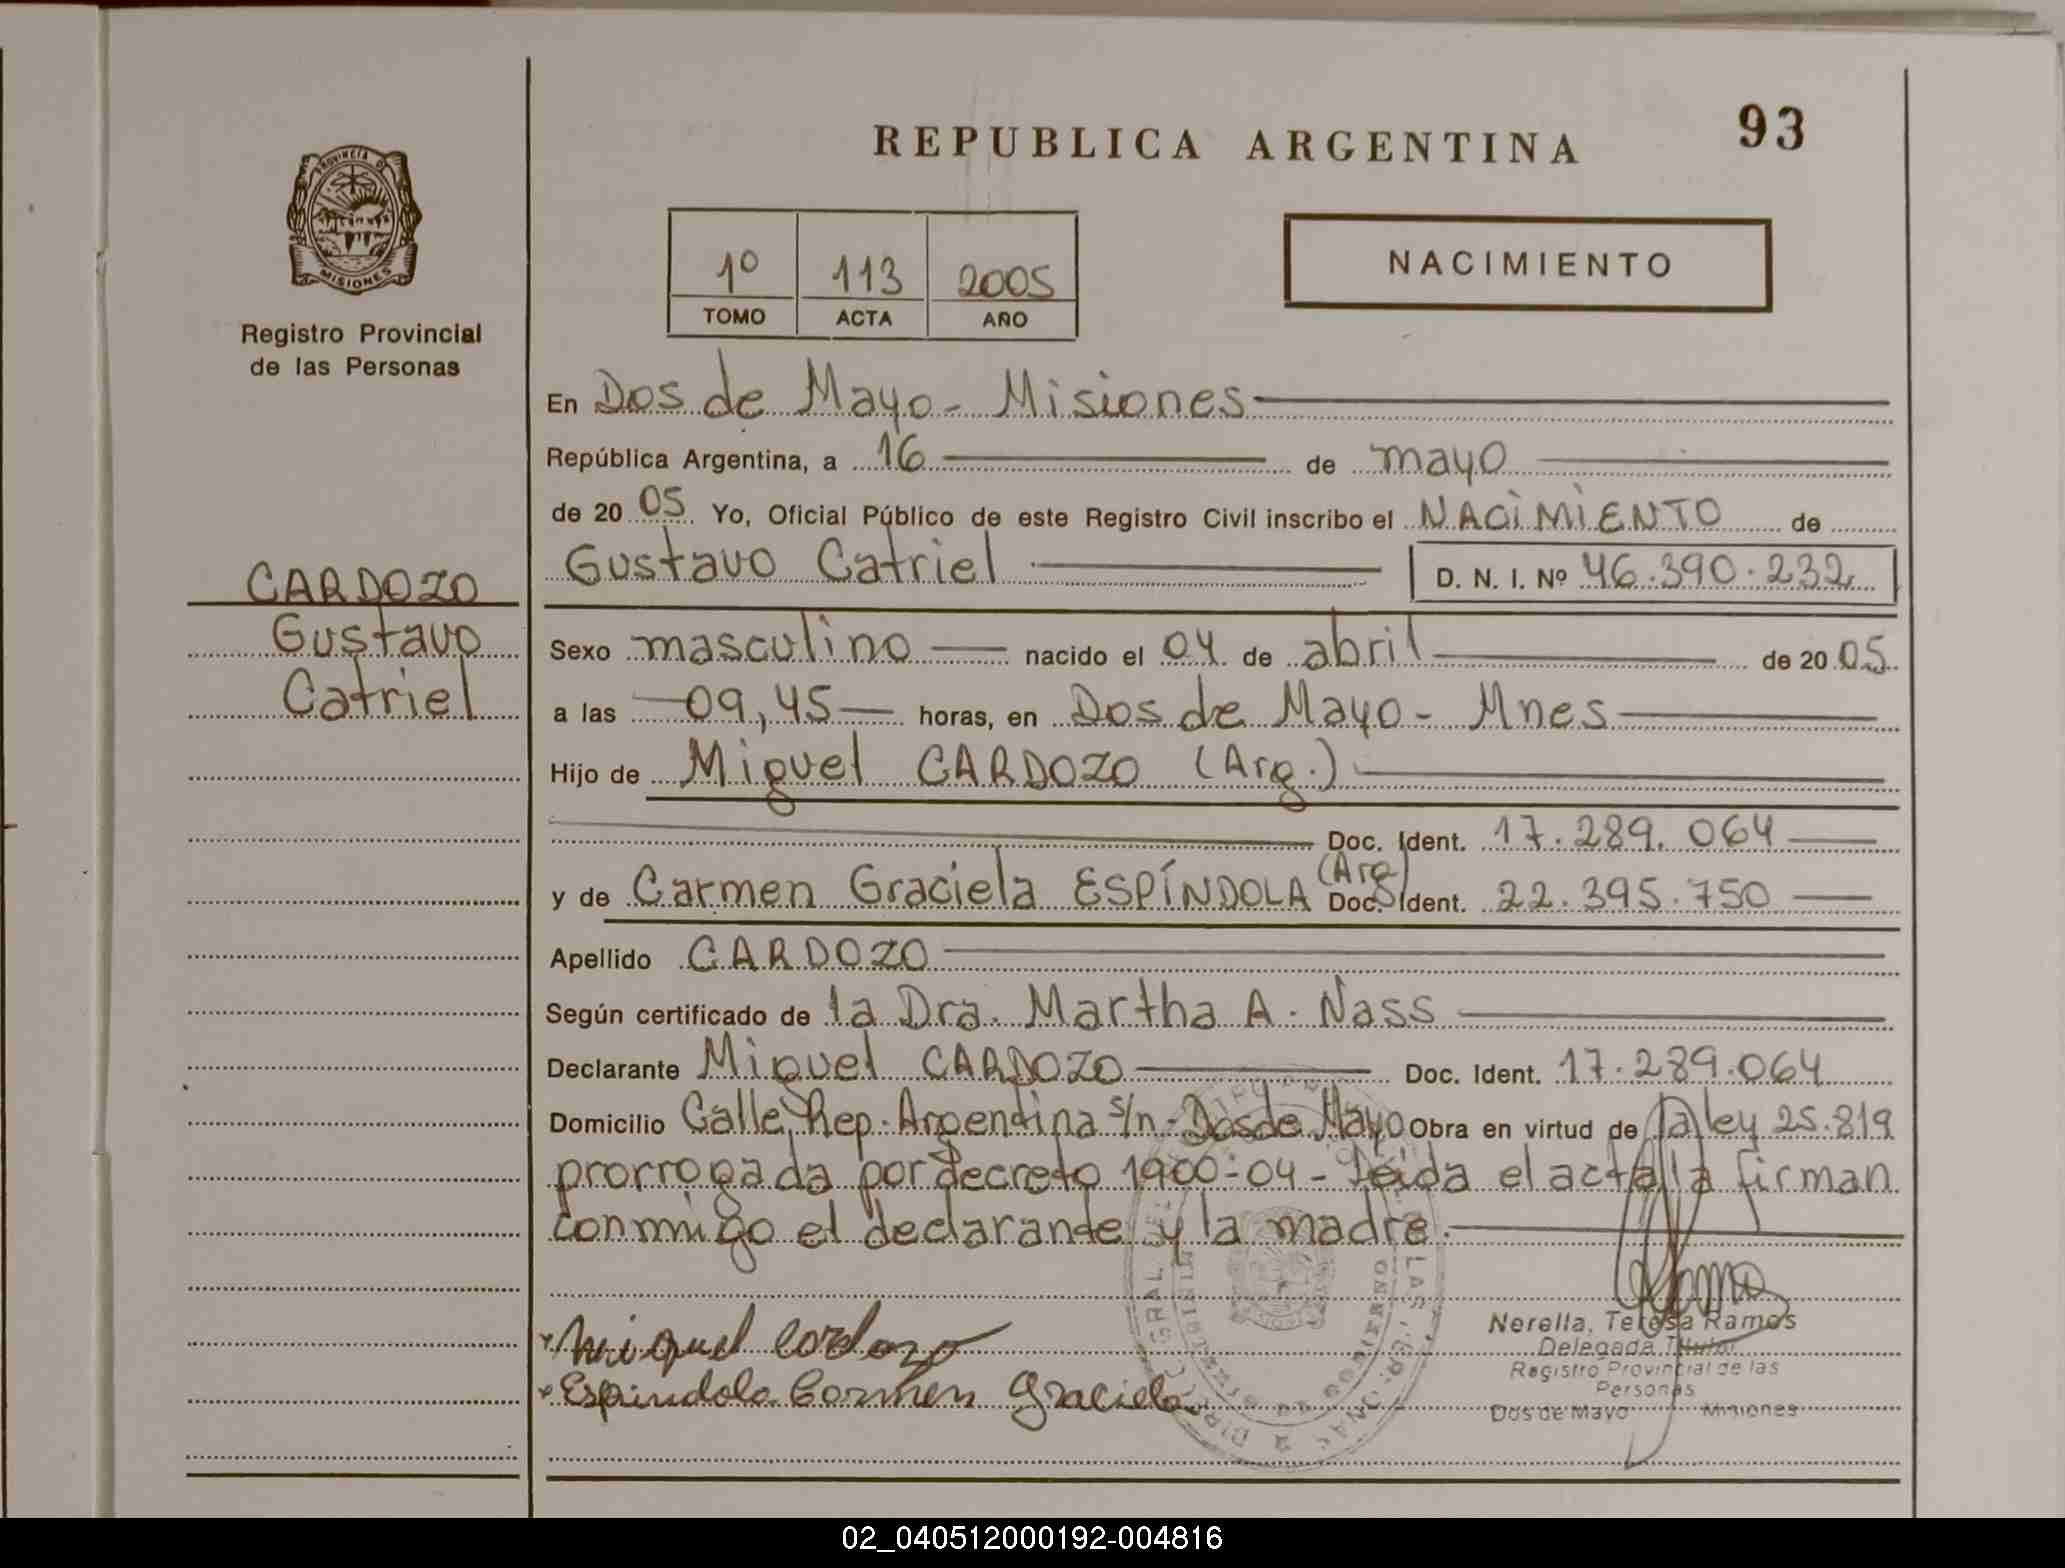 REPUBLICA ARGENTINA
93
PROVINCIA DE
MISIONES
Registro Provincial
de las Personas
1º 113 2005
TOMO ACTA AÑO
NACIMIENTO
En Dos de Mayo - Misiones
República Argentina, a 16 de mayo
de 20 05 Yo, Oficial Público de este Registro Civil inscribo el NACIMIENTO de
Gustavo Catriel D. N. I. Nº 46.390.232
CARDOZO
Gustavo
Catriel
Sexo masculino nacido el 04 de abril de 20 05
a las 09,45 horas, en Dos de Mayo - Mnes
Hijo de Miguel CARDOZO (Arg.)
Doc. Ident. 17.289.064
y de Carmen Graciela ESPÍNDOLA (Arg) Doc. Ident. 22.395.750
Apellido CARDOZO
Según certificado de la Dra. Martha A. Nass
Declarante Miguel CARDOZO Doc. Ident. 17.289.064
Domicilio Calle Rep. Argentina s/n - Dos de Mayo Obra en virtud de la ley 25.819
prorrogada por decreto 1900-04 - Leída el acta la firman
conmigo el declarande y la madre.
Miguel Cardozo
Espindola Carmen Graciela
Nerella, Teresa Ramos
Delegada Titular
Registro Provincial de las
Personas
Dos de Mayo Misiones
02_040512000192-004816